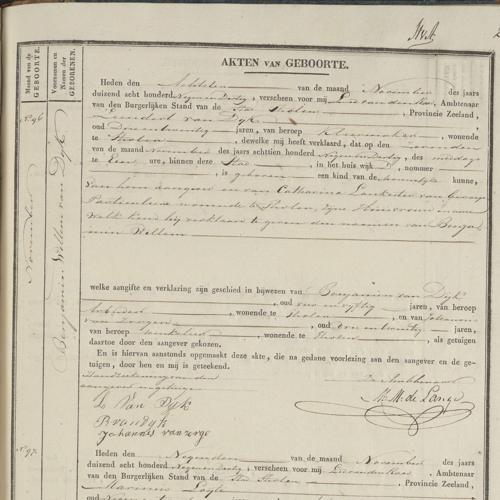 Maand van de GEBOORTE.
Voornaam en Namen der GEBORENEN.
AKTEN VAN GEBOORTE.
No 96
November
Benjamin Willem van Dijk
Heden den Achtsten van de maand November des jaars
duizend acht honderd Negen en Dertig, verscheen voor mij Ambtenaar
van den Burgerlijken Stand van de Stad Tholen, Provincie Zeeland,
Leendert van Dijk
oud Drie en twintig jaren, van beroep Kleermaker, wonende
te Tholen, dewelke mij heeft verklaard, dat op den Zevenden
van de maand November des jaars achttien honderd Negen en Dertig, des middags
te Een ure, binnen deze Stad, in het huis wijk D, nommer
, is geboren een kind van de mannelijke kunne,
van hem aangever en van Catharina
Particuliere wonende te Tholen, zijne Huisvrouw en aan
welk kind hij verklaart te geven den namen van Benja-
min Willem
welke aangifte en verklaring zijn geschied in bijwezen van Benjamin van Dijk
, oud jaren, van beroep
Arbeider, wonende te Tholen, en van Johannis
, oud jaren,
van beroep, wonende te Tholen, als getuigen
daartoe door den aangever gekozen.
En is hiervan aanstonds opgemaakt deze akte, die na gedane voorlezing aan den aangever en de ge-
tuigen, door hen en mij is geteekend.
Handteekening van den
aangever en getuigen
De Ambtenaar
L Van Dijk
M. M. de Lange
B van dijk
Johannes van
No 97.
Heden den Negenden van de maand November des jaars
duizend acht honderd Negen en Dertig, verscheen voor mij Ambtenaar
van den Burgerlijken Stand van de Stad Tholen, Provincie Zeeland,
Marinus
oud jaren, van beroep, wonende